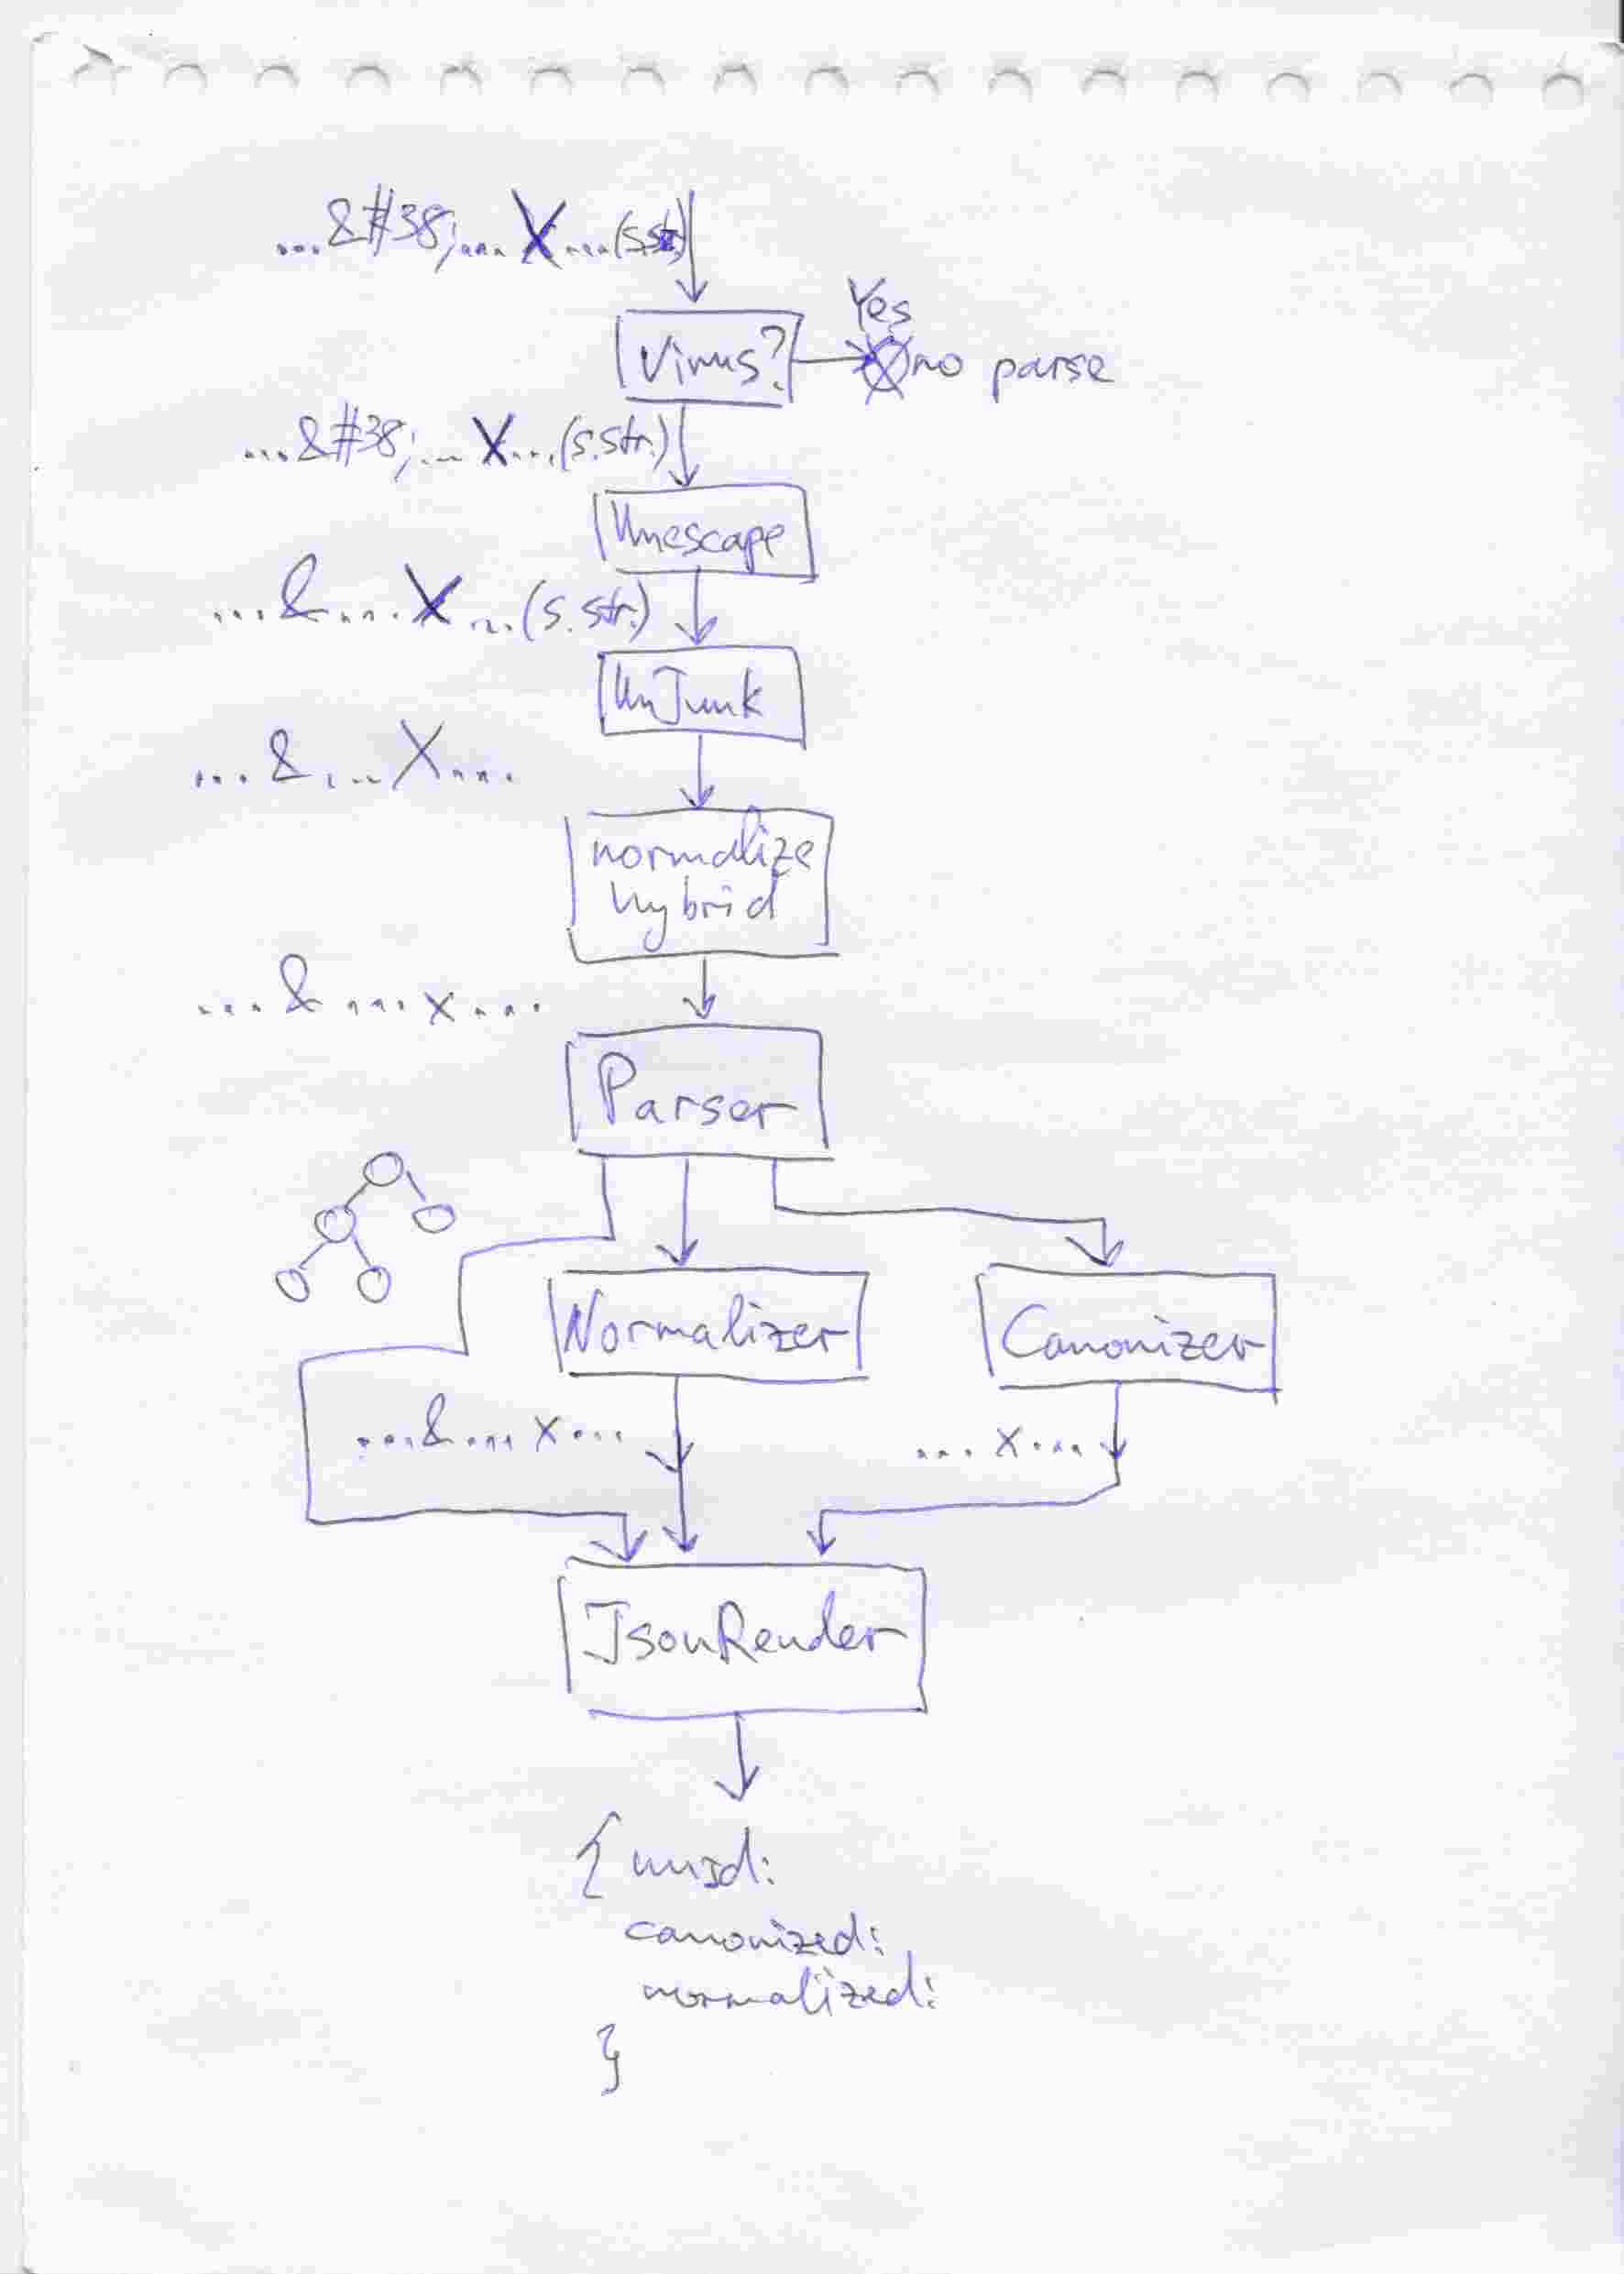 ...&#38;... X ...(s.str.)
Yes
Virus?
no parse
...&#38;... X ...(s.str.)
Unescape
...&... X ...(s.str.)
UnJunk
...&... X ...
normalize
hybrid
...& ... x ....
Parser
Normalizer
Canonizer
...&... x ...
... x ....
JsonRender
{
canonized:
normalized:
}